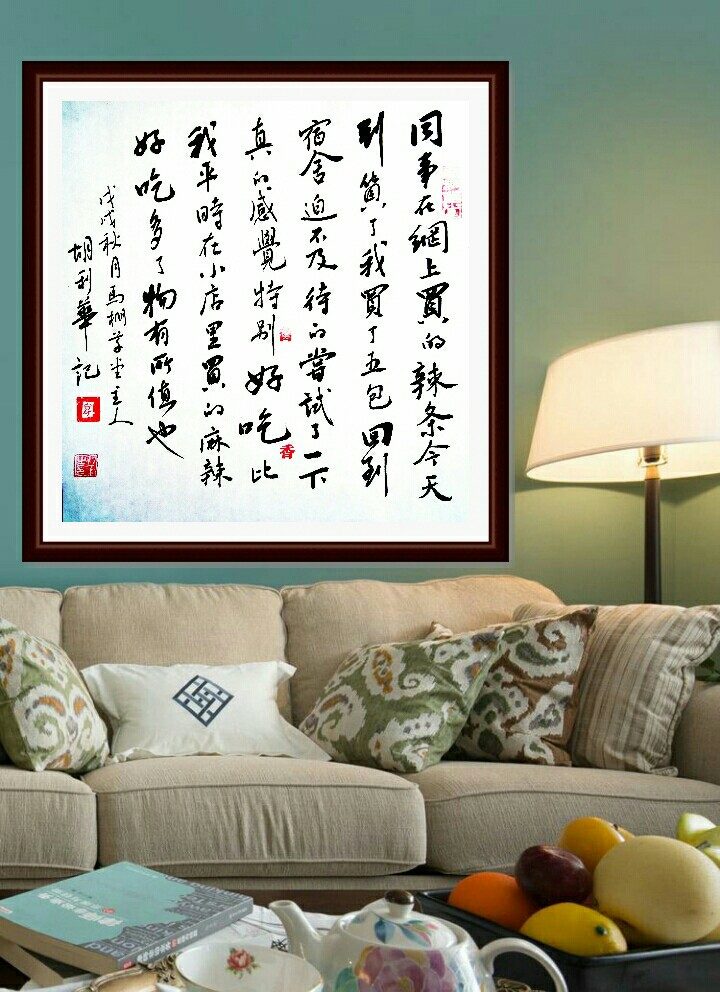 同事在網上買的辣条今天
到貨了我買了五包回到
宿舍迫不及待的嘗試了一下
真的感覺特别好吃比
我平時在小店里買的麻辣
好吃多了物有所值也
戊戌秋月馬棚草堂主人
胡利華記
香